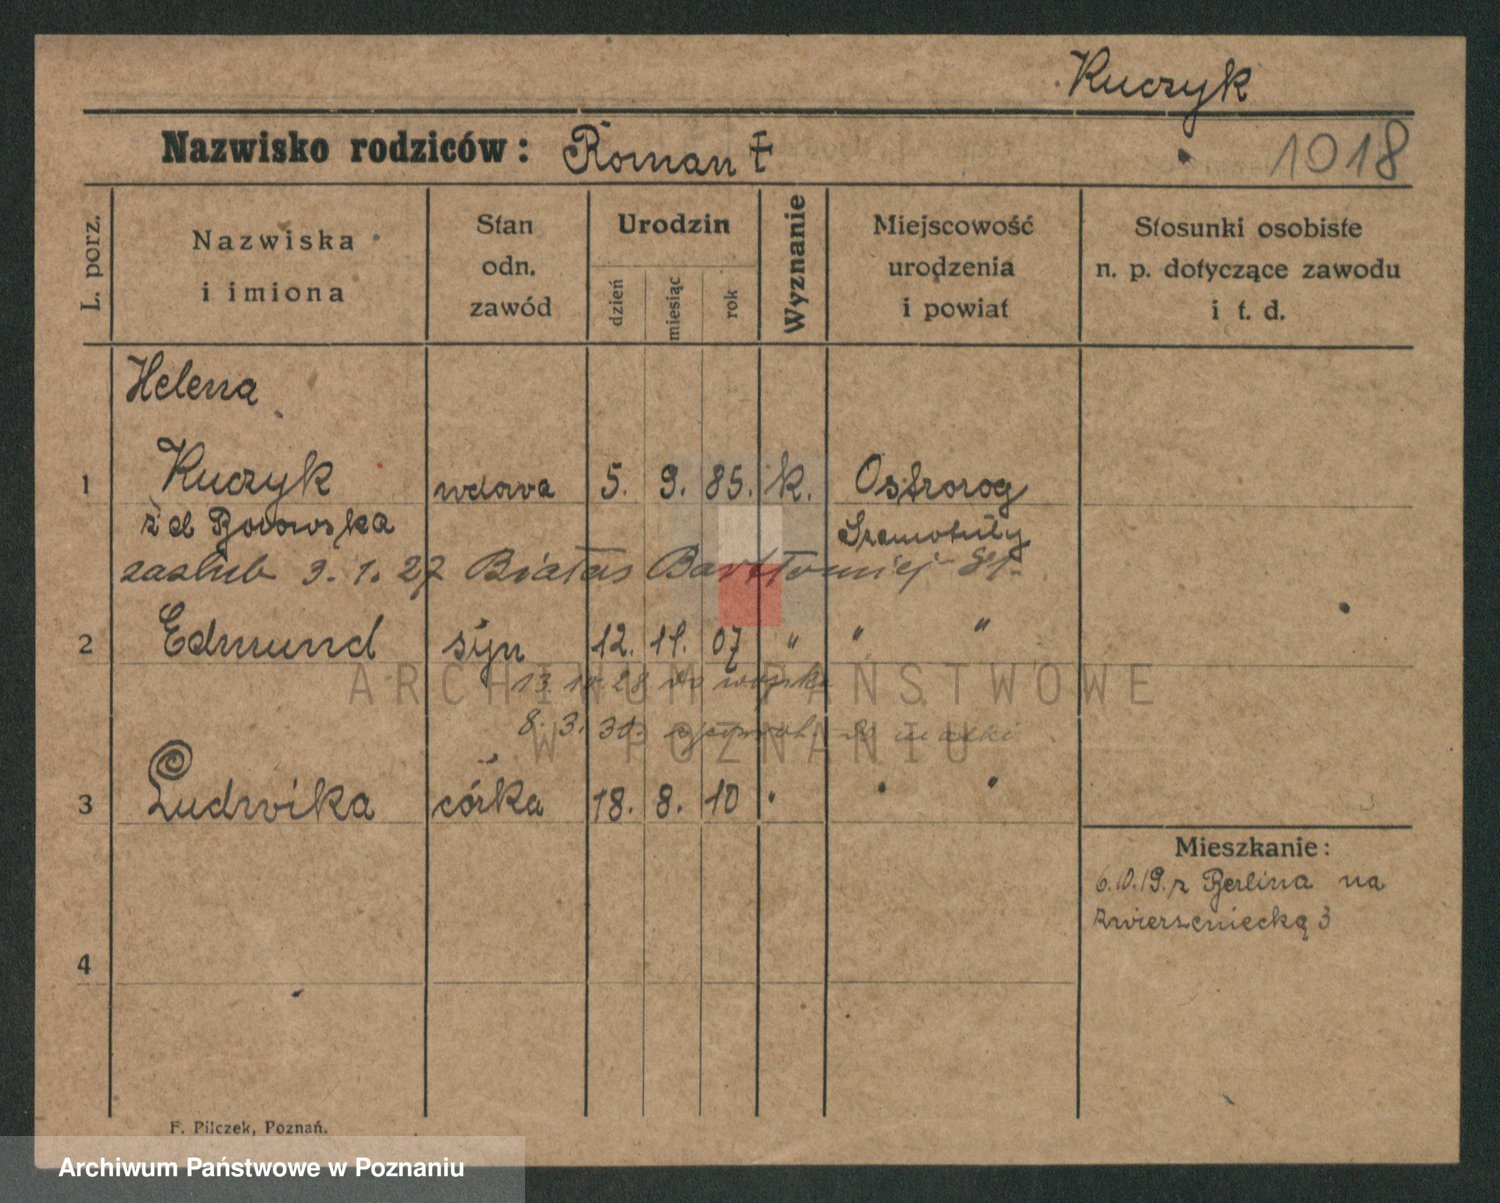 Kuczyk
Nazwisko rodziców: Roman ‡ 1018
L. porz.
Nazwiska i imiona
Stan odn. zawód
Urodzin
dzień
miesiąc
rok
Wyznanie
Miejscowość urodzenia i powiat
Stosunki osobiste n. p. dotyczące zawodu i t. d.
Helena
1 Kuczyk wdowa 5. 9. 85. k. Ostroróg
z d Borowska Szamotuły
zaślub 9. 1. 27 Białas Bartłomiej
2 Edmund syn 12. 11. 07 " " "
13 10 28 do wojska
8. 3. 30. do matki
3 Ludwika córka 18. 8. 10 " " "
Mieszkanie:
6.10.19. z Berlina na
Zwierzeniecką 3
4
F. Pilczek, Poznań.
ARCHIWUM PAŃSTWOWE
W POZNANIU
Archiwum Państwowe w Poznaniu